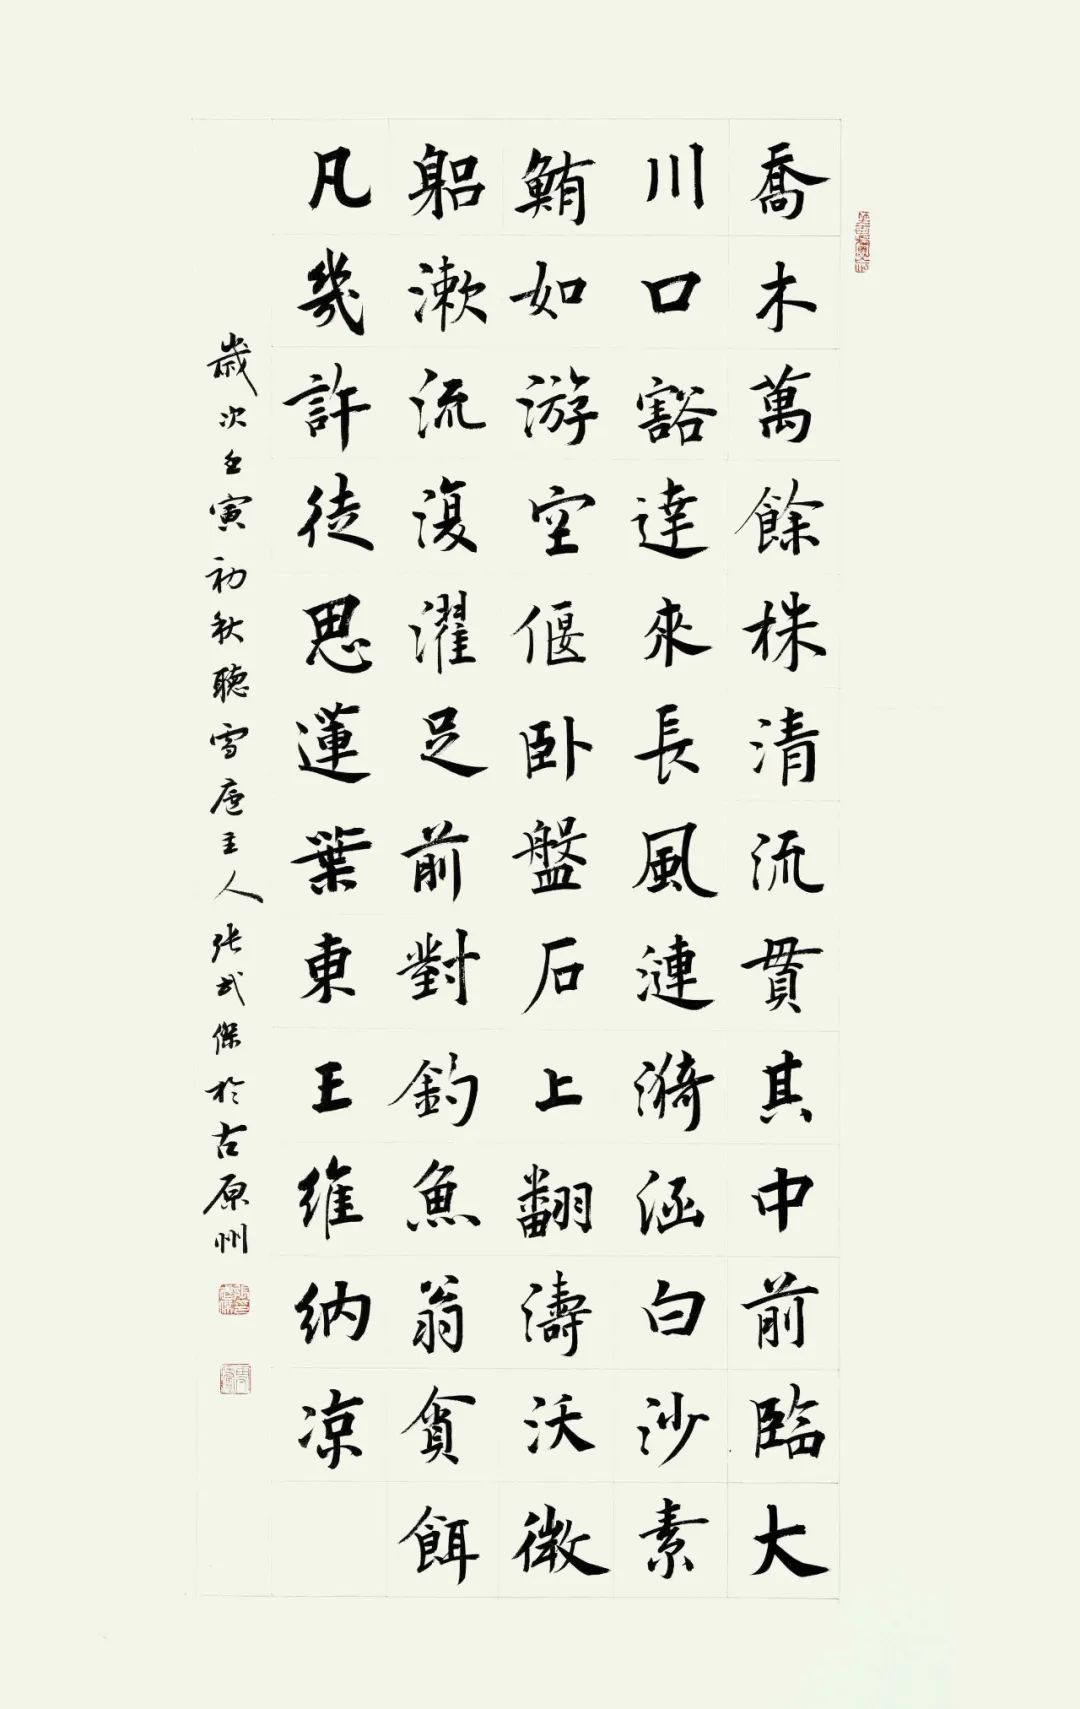 喬木萬餘株清流貫其中前臨大
川口豁達來長風漣漪涵白沙素
鮪如游空偃卧盤石上翻濤沃微
躳漱流復濯足前對釣魚翁貪餌
凡幾許徒思蓮葉東王維納凉
歲次壬寅初秋聽雪庵主人張武保於古原州